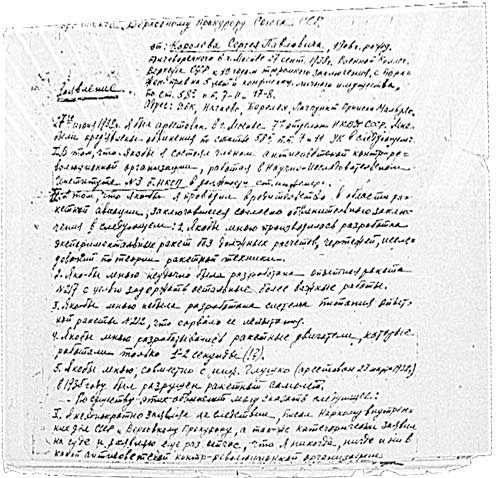 Верховному Прокурору Союза ССР
от: Королева Сергея Павловича, 1906г. рожд.
приговоренного в г. Москве 27 сент. 1938г. Военной Коллег.
Верхсуда СССР к 10 годам тюремного заключения, с пораж.
ден. прав на 5 лет и конфиск. личного имущества,
по ст. 58 п.п. 7-11 17-8.
Адрес:
Заявление.
27го июня 1938г. я был арестован в г. Москве 7м отделом НКВД СССР. Мне
были предъявлены обвинения по статье 58й п.п. 7 и 11 УК в следующем:
I. В том, что якобы я состоял членом антисоветской контр-ре-
волюционной организации, работая в Научно-Исследовательском
Институте №3 б. НКОП в должности ст. инженер.
II. В том, что якобы я проводил вредительство в области ра-
кетной авиации, заключившееся согласно обвинительного заклю-
чения в следующем: 1. Якобы мною производилась разработка
экспериментальных ракет без должных расчетов, чертежей, иссле-
дований по теории ракетной техники.
2. Якобы мною неудачно была разработана опытная ракета
№217 с целью задержать остальные более важные работы.
3. Якобы мною не была разработана система питания опыт-
ной ракеты №212, что сорвало ее испытания.
4. Якобы мною разрабатывались ракетные двигатели, которые
работали только 1-2 секунды (!?).
5. Якобы мною, совместно с инж. Глушко (арестован 23 марта 1938г)
в 1938 году был разрушен ракетный самолет.
- По существу этих обвинений могу сказать следующее:
I. Я неоднократно заявлял на следствии, писал Наркому внутрен-
них дел СССР и Верховному Прокурору, а также категорически заявил
на суде и заявляю еще раз сейчас, что я никогда, нигде и ни в
какой антисоветской контр-революционной организации